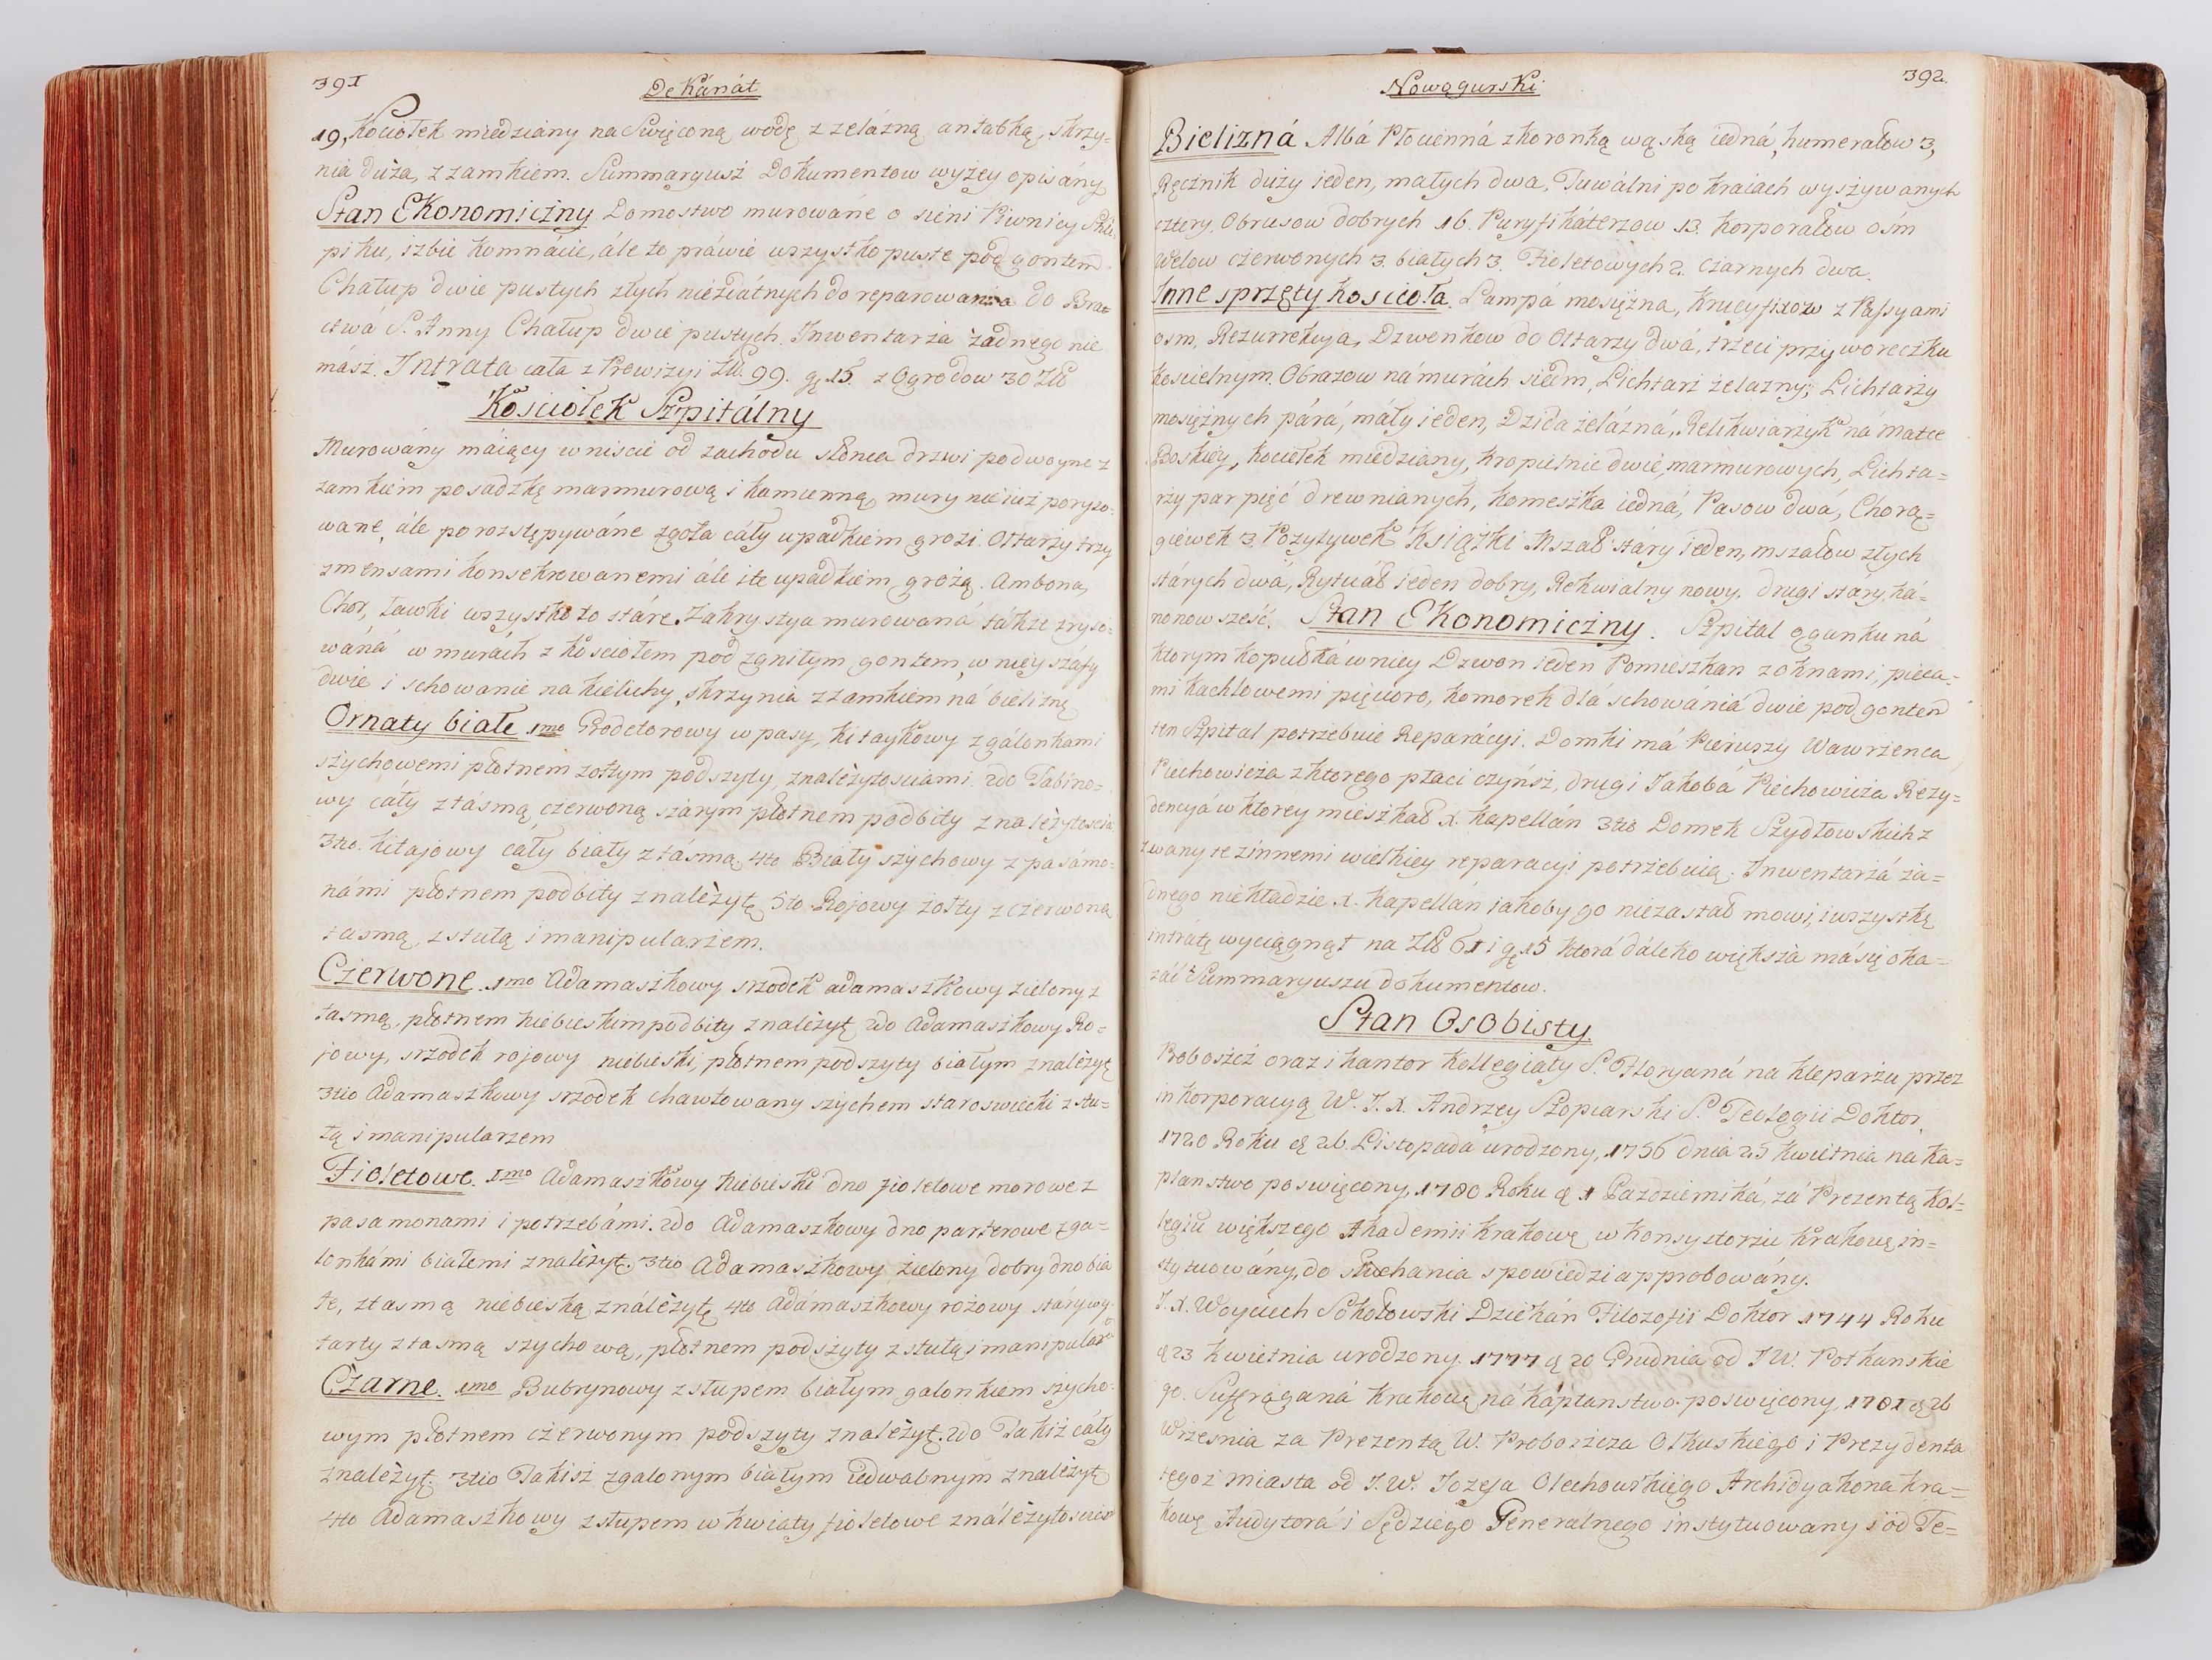 391
Dekánát
19, Kociołek miedziany na Swięconą wodę z zelázną antabką, skrzy=
nia duża, z zamkiem. Summaryusz Dokumentow wyżey opisány
Stan Ekonomiczny Domostwo murowáne o sieni Piwnicy Skle
piku, izbie komnácie, ále to práwie wszystko puste pod gontem
Chałup dwie pustych złych niezdátnych do reparowania do Bra=
ctwá S. Anny Chałup dwie pustych. Inwentarza żadnego nie
mász. Intrata cała z Prewizyi Zł. 99. gr 15. z Ogrodow 30 Zł
Kosciołek Szpitálny
Murowány máiący wniscie od zachodu słonca drzwi podwoyne z
zamkiem posadzkę marmurową i kamienną, mury nie iuż poryso=
wane, ále porozstępywáne zgoła cáły upadkiem grozi. Ołtarzy trzy
z mensami konsekrowanemi ále i te upadkiem grożą. Ambona,
Chor, ławki wszystko to stáre. Zakrystya murowaná tákże zryso=
wáná w murách z kosciołem pod zgniłym gontem, w niey száfy
dwie i schowanie na kielichy, skrzynia z zamkiem ná bieliznę
Ornaty białe 1mo Grodetorowy w pasy, kitaykowy z gálonkami
szychowemi płotnem zołtym podszyty, z należytosciami. 2do Tabino=
wy cáły z tásmą czerwoną szárym płotnem podbity z należytoscią
3tio. kitajowy cáły biały z tásmą. 4to Biały szychowy z pasámo=
námi płotnem podbity z należytę 5to Rojowy żołty z czerwoną
tasmą, z stułą i manipularzem.
Czerwone. 1mo Adamaszkowy srzodek adamaszkowy zielony z
tasmą, płotnem niebieskim podbity z należyt, 2do Adamaszkowy Ro=
jowy, srzodek rojowy niebieski, płotnem podszyty białym z należytę
3tio Adamaszkowy srzodek chawtowany szychem staroswiecki z stu=
łą i manipularzem
Fioletowe. 1mo Adamaszkowy niebieski dno fioletowe morowe z
pasamonami i potrzebámi. 2do Adamaszkowy dno parterowe z ga=
lonkámi białemi z należyt. 3tio Adamaszkowy zielony dobry dno bia
łe, z tasmą niebieską z náleżytę 4to Adámaszkowy rożowy stáry wy=
tarty z tasmą szychową, płotnem podszyty z stułą i manipular
Czarne. 1mo Bubrynowy z słupem białym galonkiem szycho=
wym płotnem czerwonym podszyty z należyt. 2do Takiż cáły
z należyt. 3tio Takisz z galonym białym iedwabnym z należytę
4to Adamaszkowy z słupem w kwiaty fioletowe z náleżytosciom
Nowągurski
392
Bielizná Albá Płocienná z koronką wąską iedná, humerałow 3,
Ręcznik duży ieden, małych dwa, Tuwálni po kraiach wyszywanych
cztery, Obrusow dobrych 16. Puryfikáterzow 13. korporałow osm
Welow czerwonych 3. białych 3. Fioletowych 2. czarnych dwa.
Inne sprzęty koscioła. Lampá mosiężna, Krucyfixow z Passyami
osm, Rezurrekcya, Dzwonkow do Ołtarzy dwá, trzeci przy woreczku
koscielnym. Obrazow ná murách siedm, Lichtarz żelazny; Lichtarzy
mosiężnych párá, máły ieden, Dzida żelázná, Relikwiarzyk ná Matce
Boskiey, kociełek miedziany, kropielnic dwie, marmurowych, Lichta=
rzy par pięć drewnianych, komeszka iedná, Pasow dwá, Chorą=
giewek 3. Pozytywek Ksiąszki Mszał stáry ieden, mszałow złych
stárych dwá, Rytuał ieden dobry, Rekwialny nowy, drugi stáry, ká=
nonow szesć. Stan Ekonomiczny. Szpital o ganku ná
ktorym kopułká w niey Dzwon ieden Pomieszkan z oknami, pieca=
mi kachlowemi pięcioro, komorek dlá schowániá dwie pod gontem
ten Szpital potrzebuie Reparácyi. Domki má Pierwszy Wawrzenca
Piechowicza z ktorego płaci czynsz, drugi Jakobá Piechowicza Rezy=
dencyá w ktorey mieszkał X. Kapellán 3tio Domek Szydłowskich z
wany te z innemi wielkiey reparacyi potrzebuią. Inwentarzá ża=
dnego niekładzie X. Kapellán iakoby go niezastał mowi, i wszystkę
intrátę wyciągnął na Zł 61 i gr 15 ktorá dáleko większa má się oka=
záć z Summaryuszu dokumentow.
Stan Osobisty.
Proboszcz oraz i kantor Kollegiaty S. Floryaná na Kleparzu przez
inkorporacyą W. J. X. Andrzey Szopiarski S. Teologii Doktor.
1720 Roku d. 26. Listopada urodzony, 1756 dnia 25 kwietnia na ka=
planstwo poswięcony, 1780 Roku d. 1 Pazdziernika, zá Prezentą Kol=
legiu większego Akademii krakowę w konsystorzu krakowę in=
stytuowány, do słuchania spowiedzi approbowány.
J. X. Woyciech Sokołowski Dziekán Filozofii Doktor 1744 Roku
d. 23 kwietnia urodzony. 1777 d. 20 Grudnia od J W. Potkanskie
go. Suffragana krakowę ná káplanstwo poswięcony, 1781 d. 26
Wrzesnia za Prezentą W. Proboszcza Olkuskiego i Prezydenta
tegoż miasta od J. W. Jozefa Olechowskiego Archidyakona kra=
kowę Audytorá i Sędziego Generálnego instytuowany i od Te=